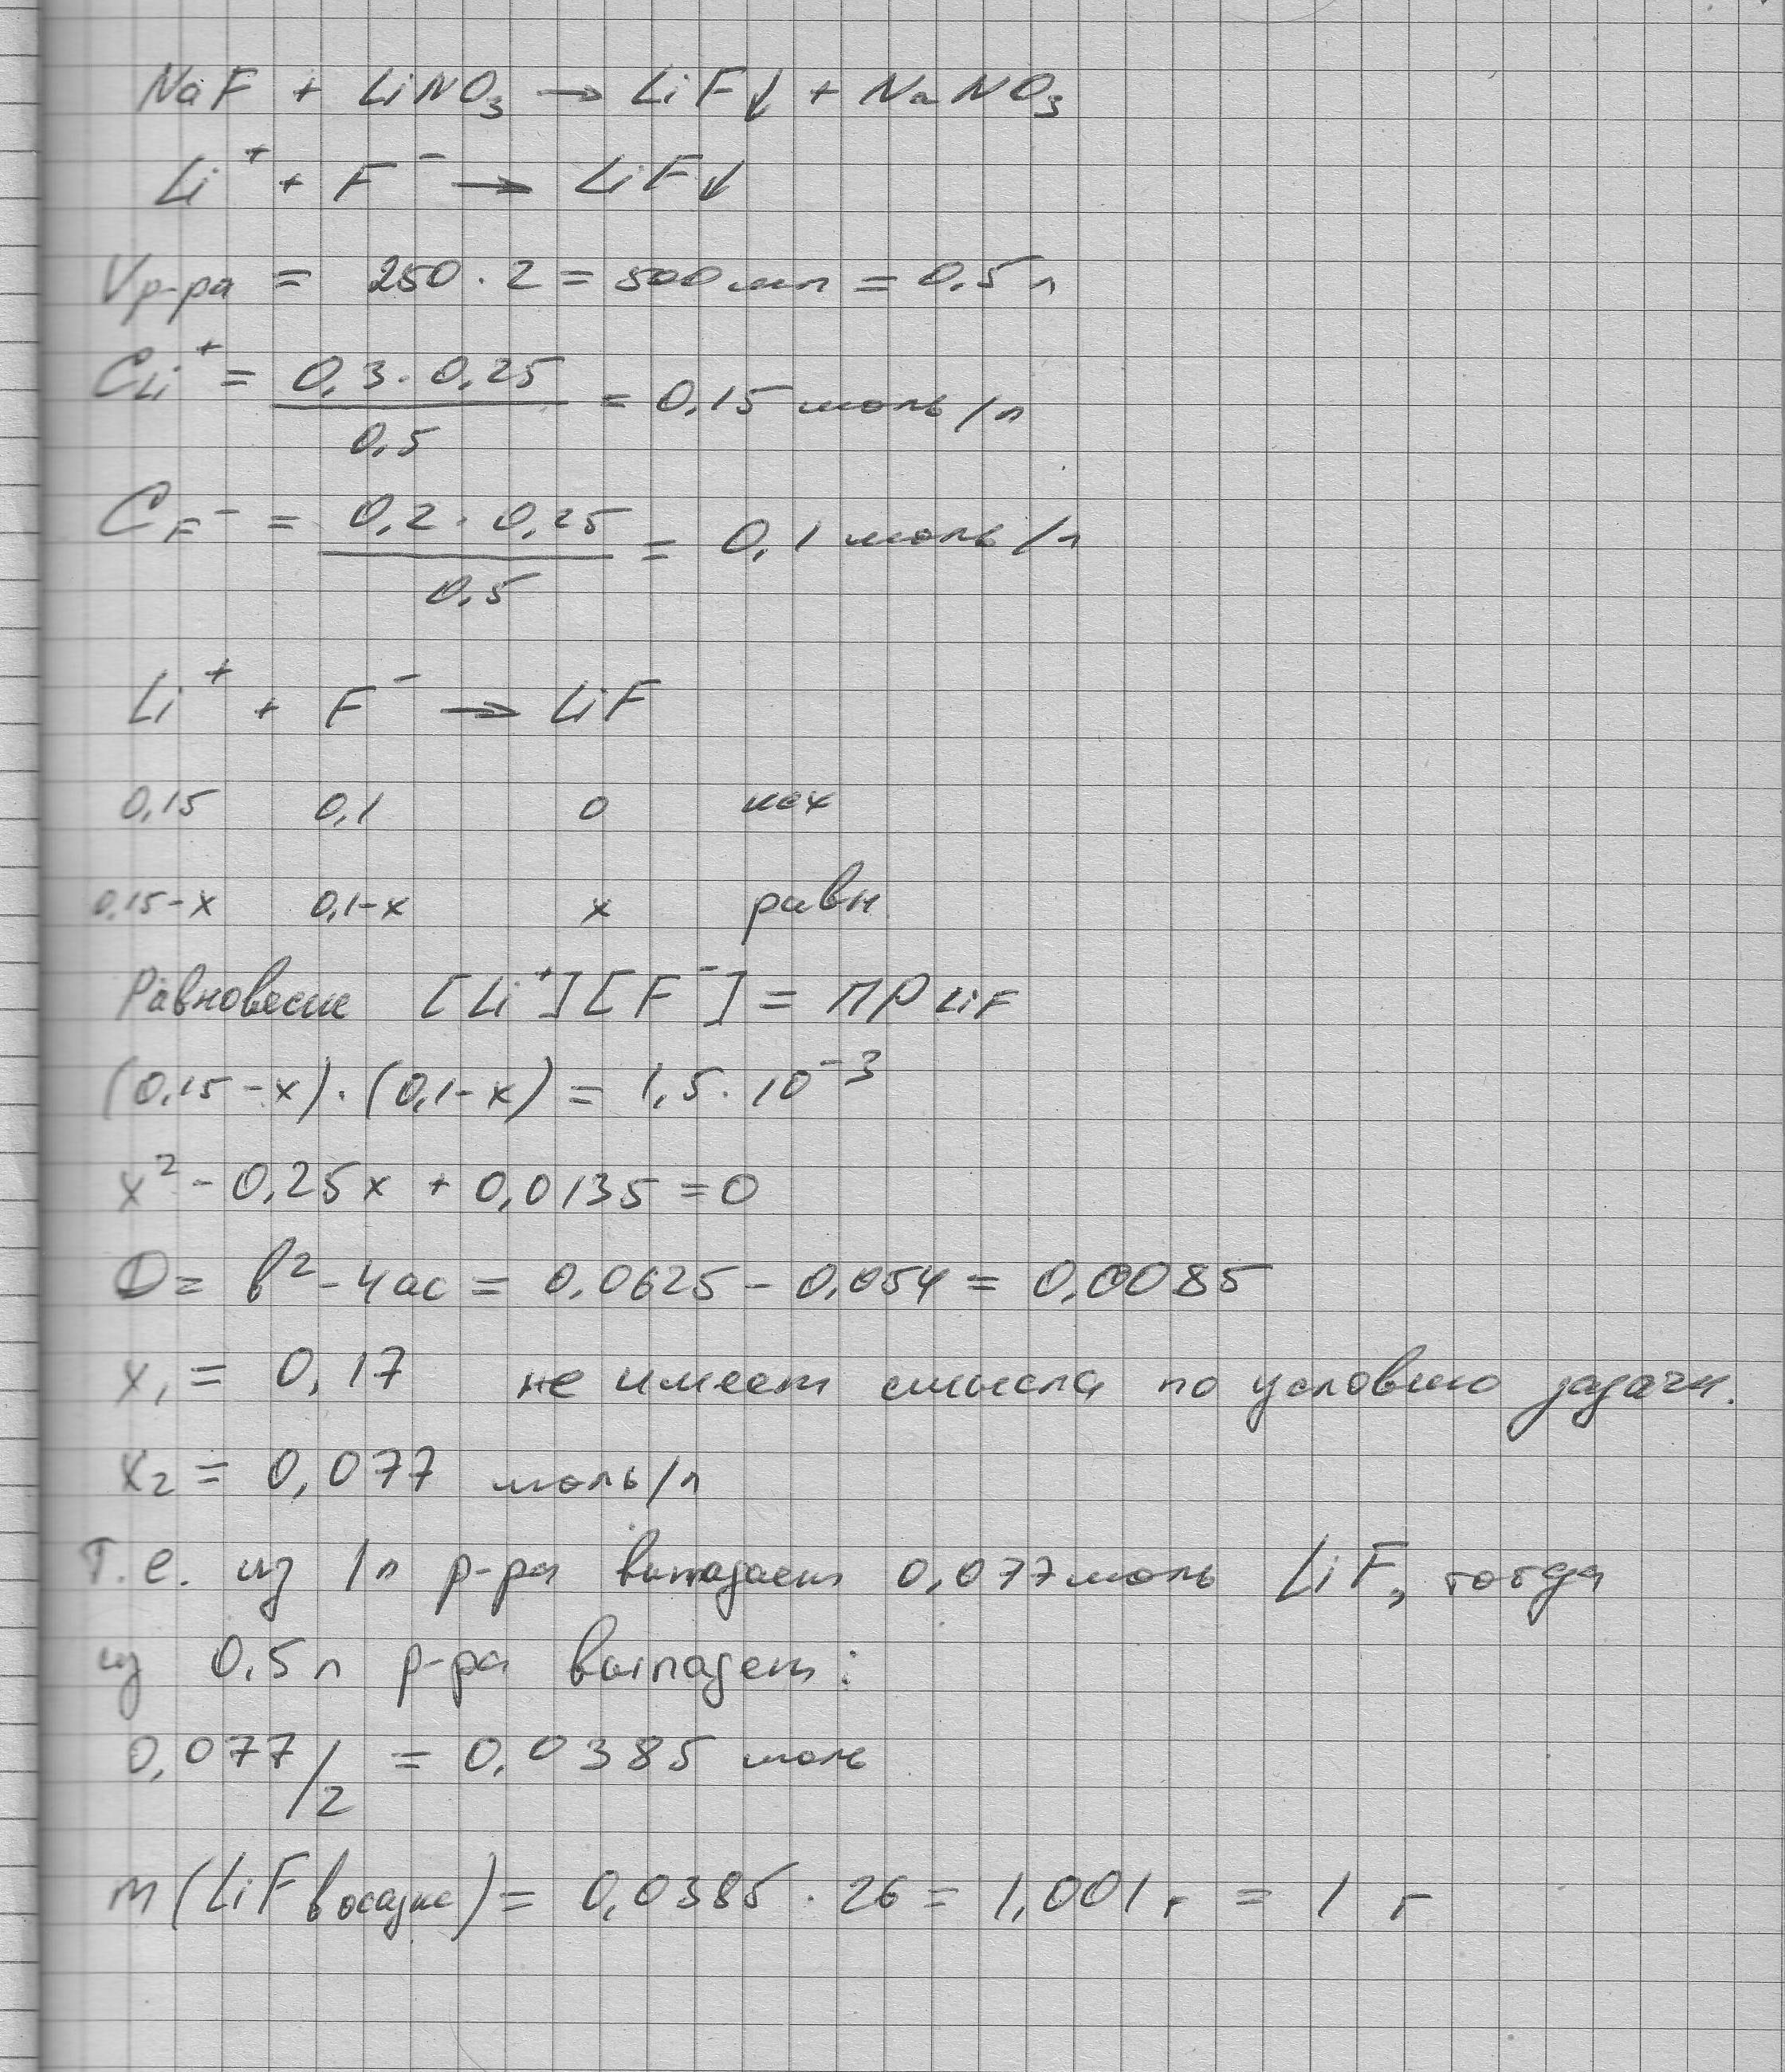 NaF + LiNO₃ → LiF↓ + NaNO₃
Li⁺ + F⁻ → LiF↓
Vр-ра = 250 · 2 = 500 мл = 0,5 л
C Li⁺ = 0,3 · 0,25 / 0,5 = 0,15 моль/л
C F⁻ = 0,2 · 0,25 / 0,5 = 0,1 моль/л
Li⁺ + F⁻ → LiF
0,15 0,1 0 исх
0,15-x 0,1-x x равн
Равновесие [Li⁺][F⁻] = ПР LiF
(0,15-x)·(0,1-x) = 1,5·10⁻³
x² - 0,25x + 0,0135 = 0
D = b² - 4ac = 0,0625 - 0,054 = 0,0085
x₁ = 0,17 не имеет смысла по условию задачи.
x₂ = 0,077 моль/л
Т.е. из 1л р-ра выпадает 0,077 моль LiF, тогда
из 0,5 л р-ра выпадет:
0,077/2 = 0,0385 моль
m(LiF в осадке) = 0,0385 · 26 = 1,001 г = 1 г